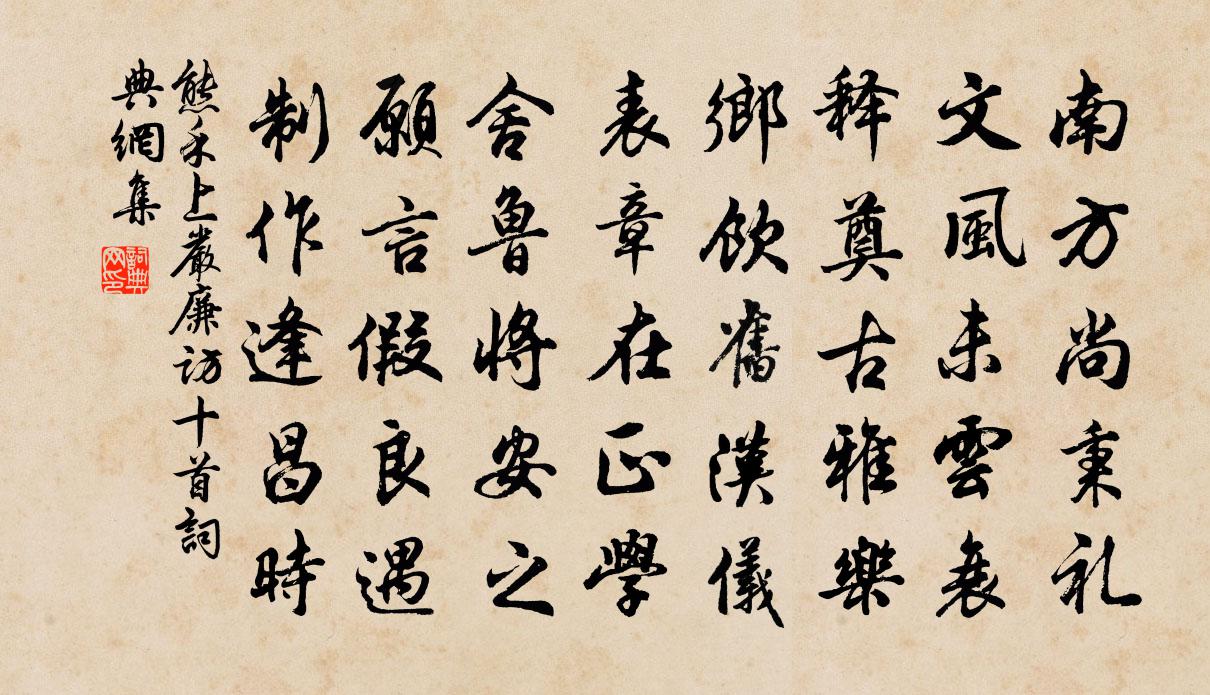 南方尚秉礼
文風未雲衰
释奠古雅樂
鄉飲舊漢儀
表章在正學
舍魯將安之
願言假良遇
制作逢昌時
熊禾上嚴廉訪十首詞
典網集
詞典網印